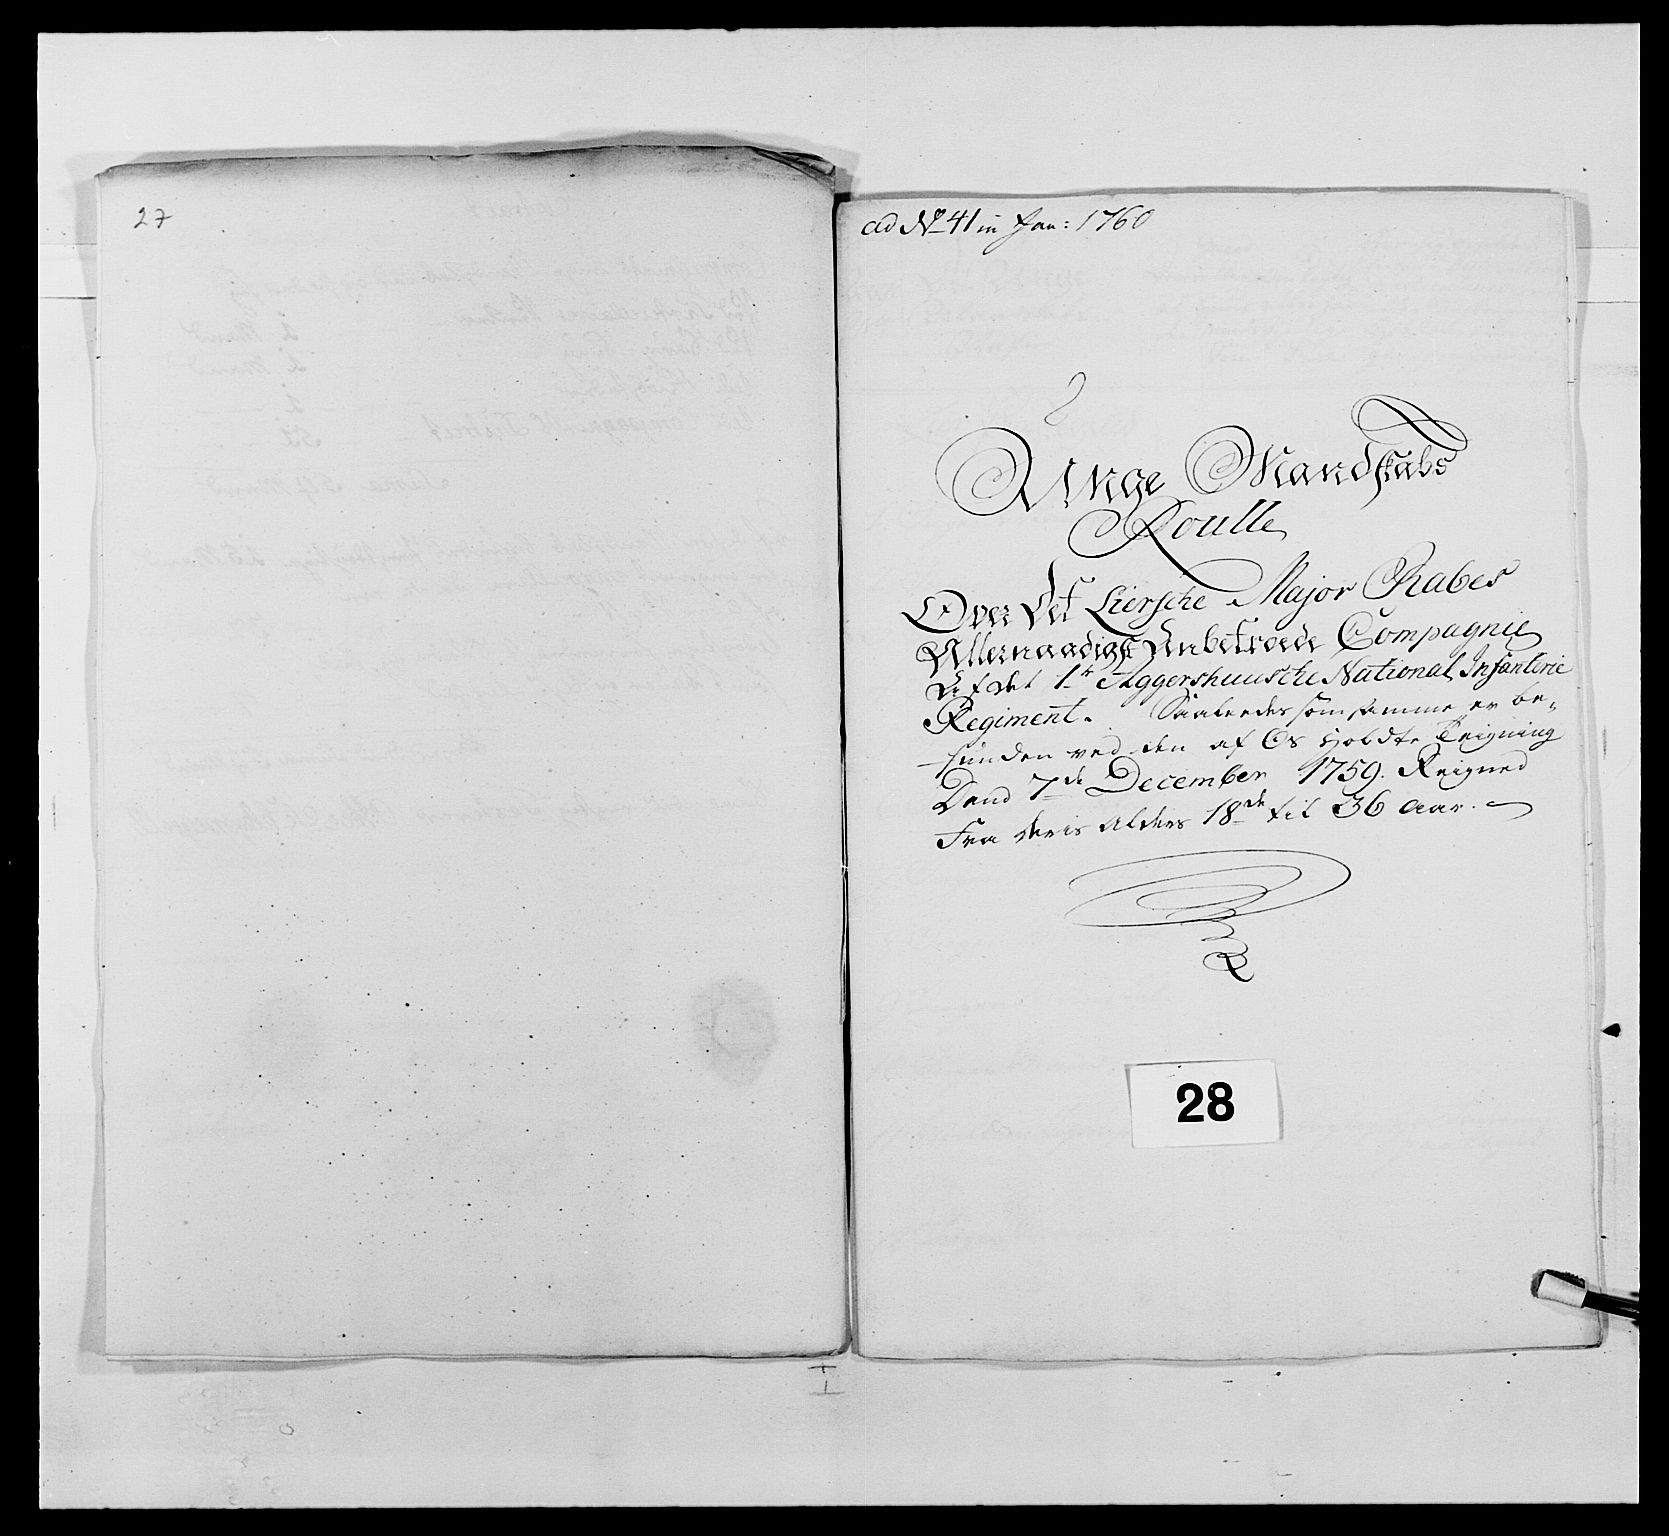 27
ad No 41 in Jan: 1760
Unge Mandskabs
Roulle
Over Det Liersche Major Rabes
Allernaadigst Anbetroede Compagnie
Af det 1te Aggershuusche National Infanterie
Regiment. Saaledes som samme er be-
funden ved den af Os holdte Seigning
Dend 7de December 1759. Reigned
Fra deris Alders 18de til 36 Aar.
28